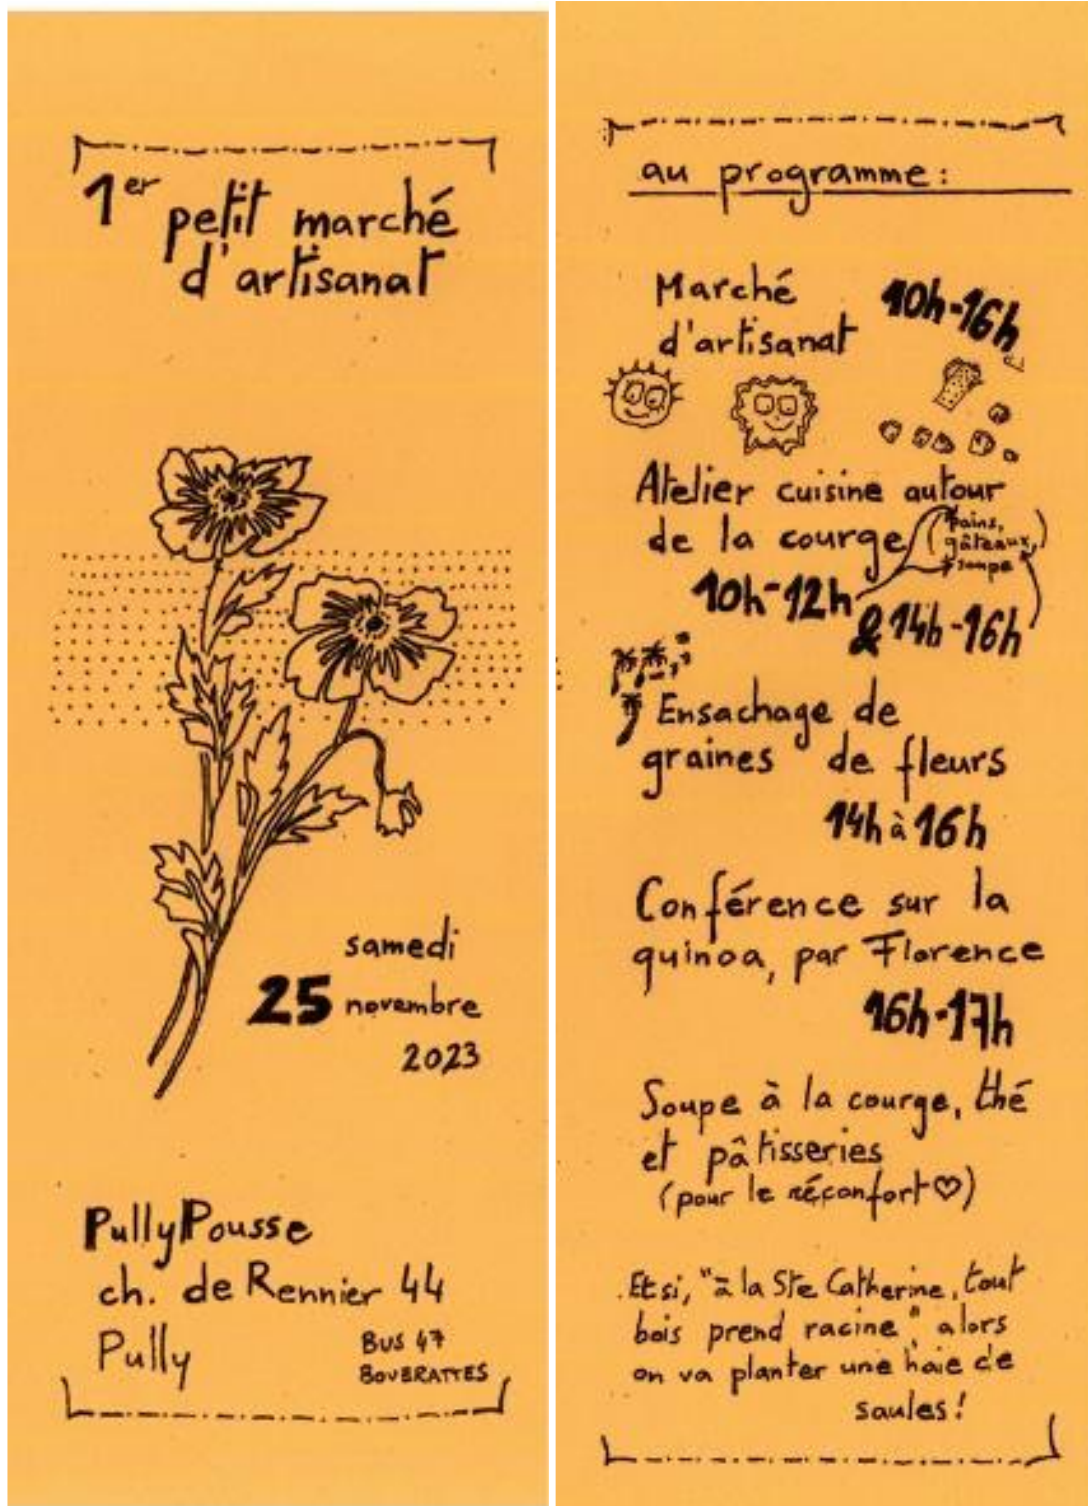 1er petit marché
d'artisanat
samedi
25 novembre
2023
PullyPousse
ch. de Rennier 44
Pully
BUS 47
BOVERATTES
au programme :
Marché
d'artisanat
10h-16h
Atelier cuisine autour
de la courge (pains,
gâteaux,)
soupe
10h-12h
& 14h-16h
Ensachage de
graines de fleurs
14h à 16h
Conférence sur la
quinoa, par Florence
16h-17h
Soupe à la courge, thé
et pâtisseries
(pour le réconfort ♡)
Et si, "à la Ste Catherine, tout
bois prend racine", alors
on va planter une haie de
saules !